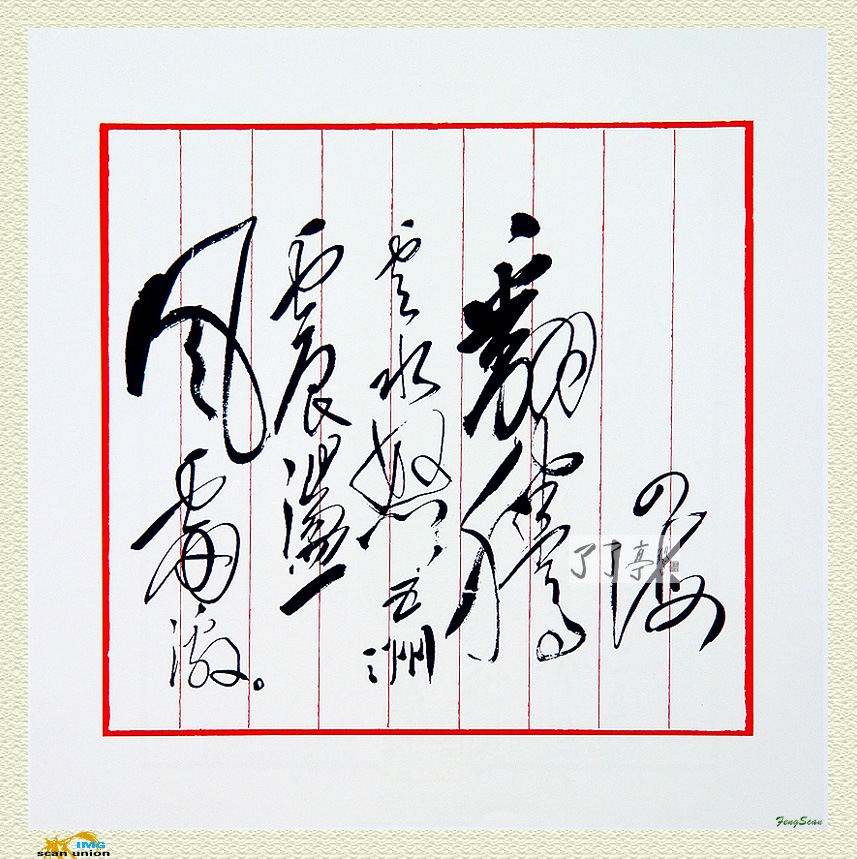 四海
翻腾
雲水怒五洲
震盪
风雷激。
了了亭
FengScan
IMG
scan union